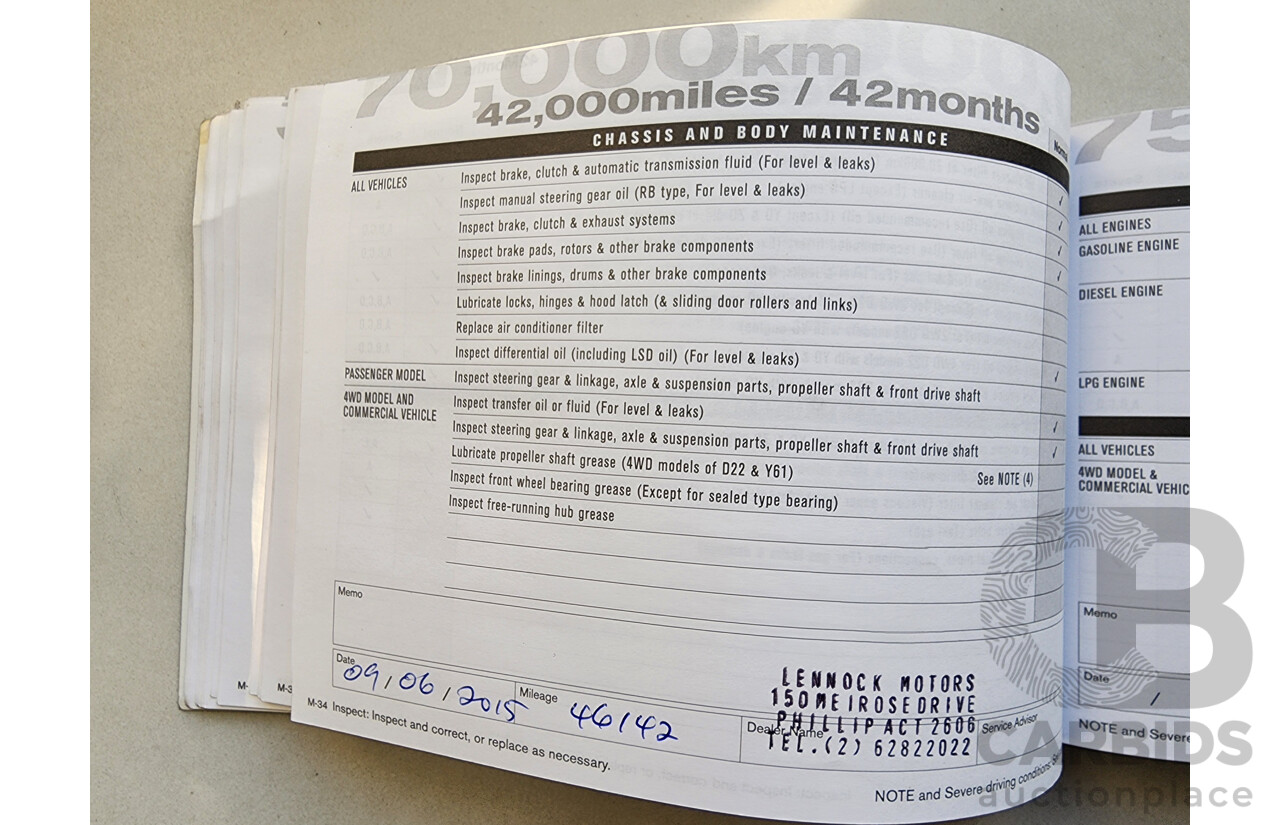 70,000km
42,000miles / 42months
CHASSIS AND BODY MAINTENANCE
Normal
ALL VEHICLES
Inspect brake, clutch & automatic transmission fluid (For level & leaks)
Inspect manual steering gear oil (RB type, For level & leaks)
Inspect brake, clutch & exhaust systems
Inspect brake pads, rotors & other brake components
Inspect brake linings, drums & other brake components
Lubricate locks, hinges & hood latch (& sliding door rollers and links)
Replace air conditioner filter
Inspect differential oil (including LSD oil) (For level & leaks)
PASSENGER MODEL
Inspect steering gear & linkage, axle & suspension parts, propeller shaft & front drive shaft
4WD MODEL AND
COMMERCIAL VEHICLE
Inspect transfer oil or fluid (For level & leaks)
Inspect steering gear & linkage, axle & suspension parts, propeller shaft & front drive shaft
Lubricate propeller shaft grease (4WD models of D22 & Y61) See NOTE (4)
Inspect front wheel bearing grease (Except for sealed type bearing)
Inspect free-running hub grease
Memo
Date 09/06/2015
Mileage 46142
Dealer Name
LENNOCK MOTORS
150 MEIROSE DRIVE
PHILLIP ACT 2606
TEL.(2) 62822022
Service Advisor
M-34 Inspect: Inspect and correct, or replace as necessary.
NOTE and Severe driving conditions:
M-
M-3
75
ALL ENGINES
GASOLINE ENGINE
DIESEL ENGINE
LPG ENGINE
ALL VEHICLES
4WD MODEL &
COMMERCIAL VEHIC
Memo
Date
/
NOTE and Severe
CARBIDS
auctionplace